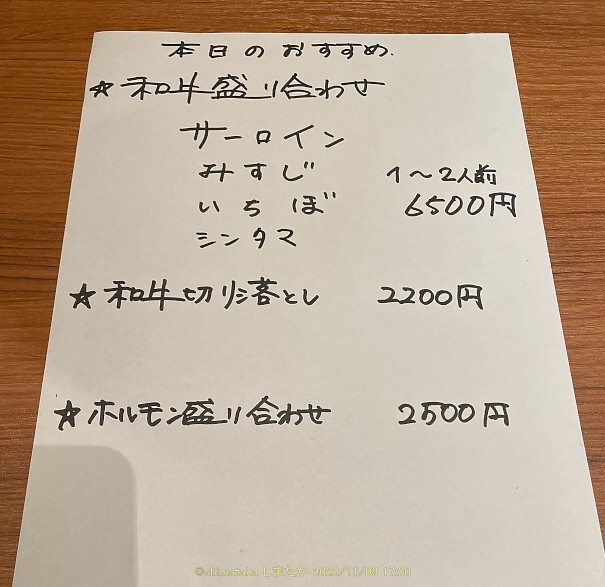 本日のおすすめ.
☆ 和牛盛り合わせ
サーロイン
みすじ 1〜2人前
いちぼ 6500円
シンタマ
☆ 和牛切り落とし 2200円
☆ ホルモン盛り合わせ 2500円